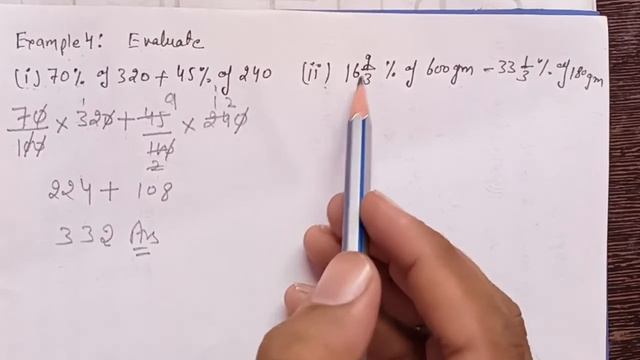 Example 4: Evaluate
(i) 70% of 320 + 45% of 240
(ii) 16 2/3 % of 600 gm - 33 1/3 % of 180 gm
70/100 × 320 + 45/100 × 240
1 9 12
2
224 + 108
332 Ans